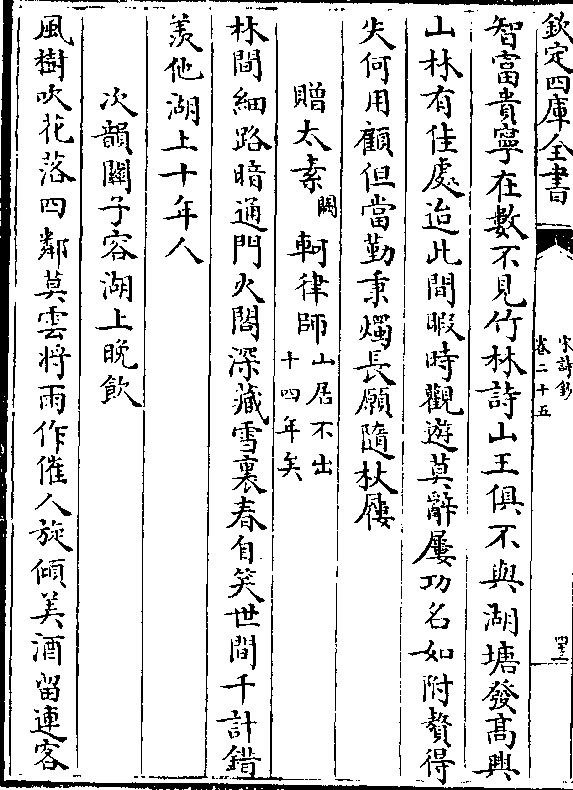 欽定四庫全書
宋詩鈔
卷二十五
智富貴寧在數不見竹林詩山王俱不與湖塘發高興
山林有佳處迨此間暇時觀遊莫辭屢功名如附贅得
失何用顧但當勤秉燭長願隨杖屨
贈太素闕軻律師山居不出
十四年矣
林間細路暗通門火閤深藏雪裏春自笑世間千計錯
羨他湖上十年人
次韻關子容湖上晚飲
風樹吹花落四鄰莫雲將雨作催人旋傾美酒留連客